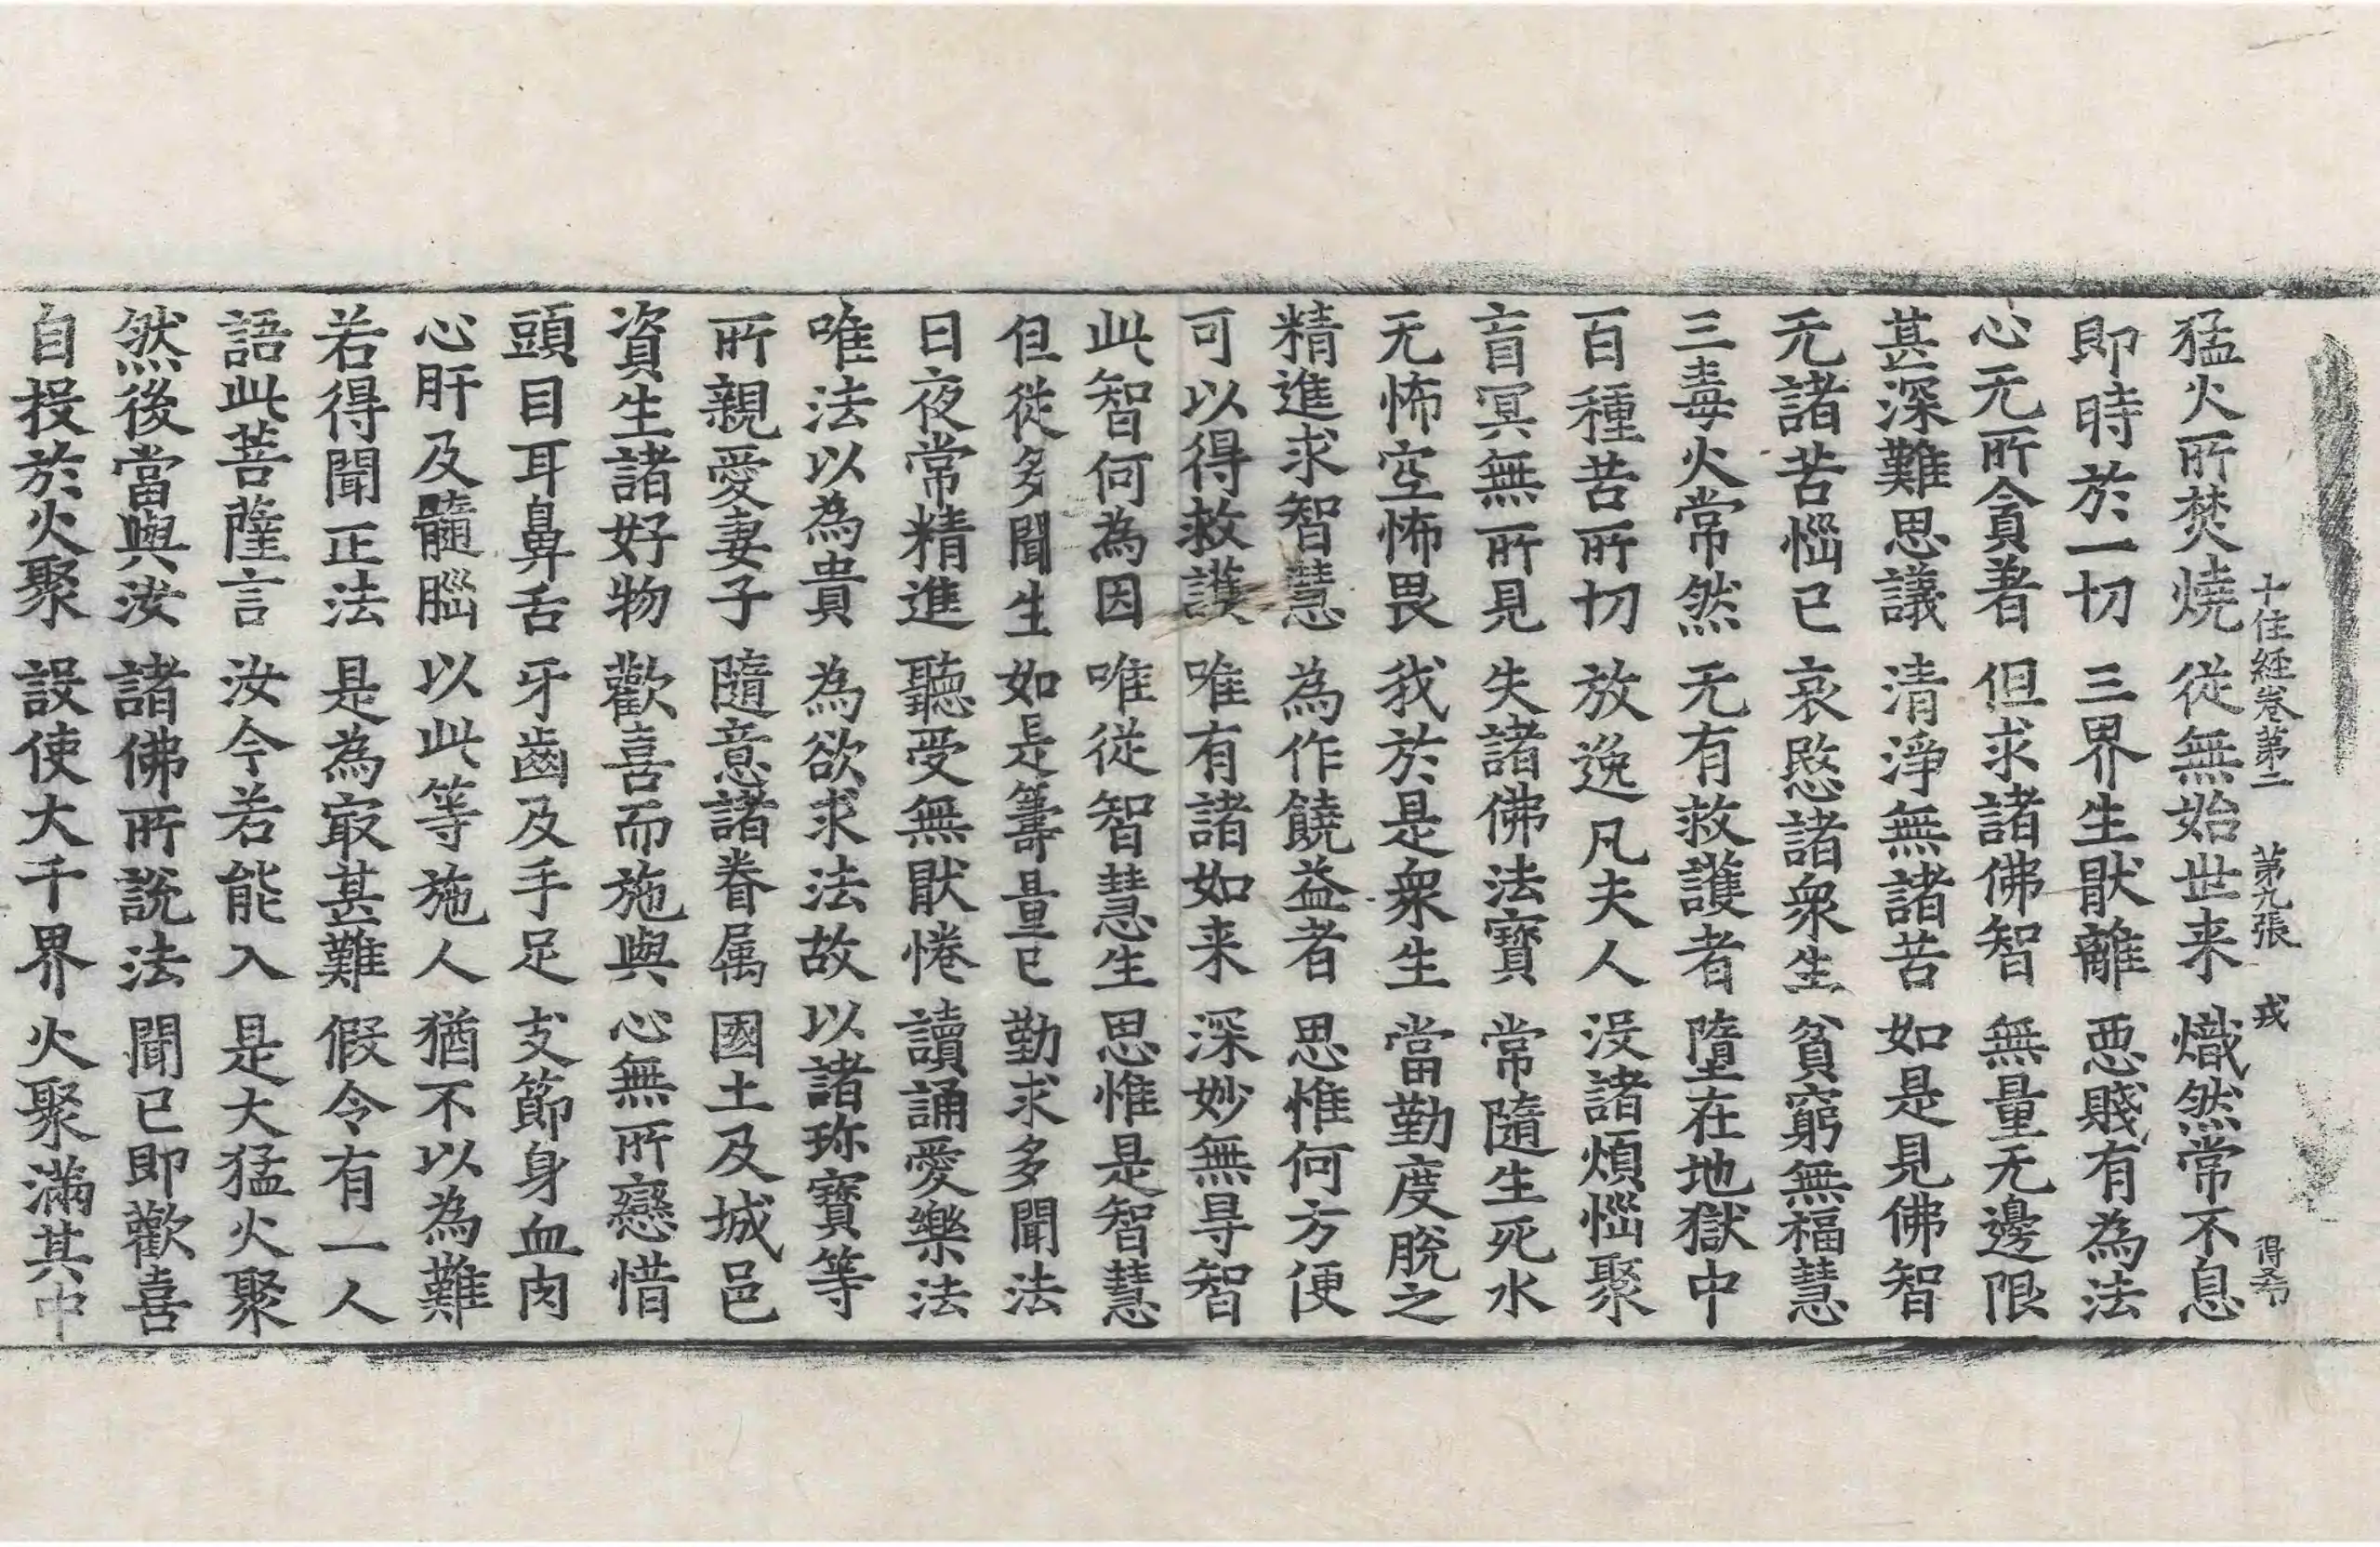 十住経巻第二 第九張 戎 得希
猛火所焚燒 従無始世来 熾然常不息
即時於一切 三界生猒離 惡賤有為法
心无所貪著 但求諸佛智 無量无邊限
甚深難思議 清淨無諸苦 如是見佛智
无諸苦惱已 哀愍諸衆生 貧窮無福慧
三毒火常然 无有救護者 墮在地獄中
百種苦所切 放逸凡夫人 没諸煩惱聚
盲冥無所見 失諸佛法寳 常隨生死水
无怖空怖畏 我於是衆生 當勤度脫之
精進求智慧 為作饒益者 思惟何方便
可以得救護 唯有諸如来 深妙無㝵智
此智何為因 唯從智慧生 思惟是智慧
但從多聞生 如是籌量已 勤求多聞法
日夜常精進 聽受無猒惓 讀誦愛樂法
唯法以為貴 為欲求法故 以諸珎寳等
所親愛妻子 隨意諸眷属 國土及城邑
資生諸好物 歡喜而施與 心無所戀惜
頭目耳鼻舌 牙齒及手足 支節身血肉
心肝及髓腦 以此等施人 猶不以為難
若得聞正法 是為㝡甚難 假令有一人
語此菩薩言 汝今若能入 是大猛火聚
然後當與汝 諸佛所說法 聞已即歡喜
自投於火聚 設使大千界 火聚滿其中